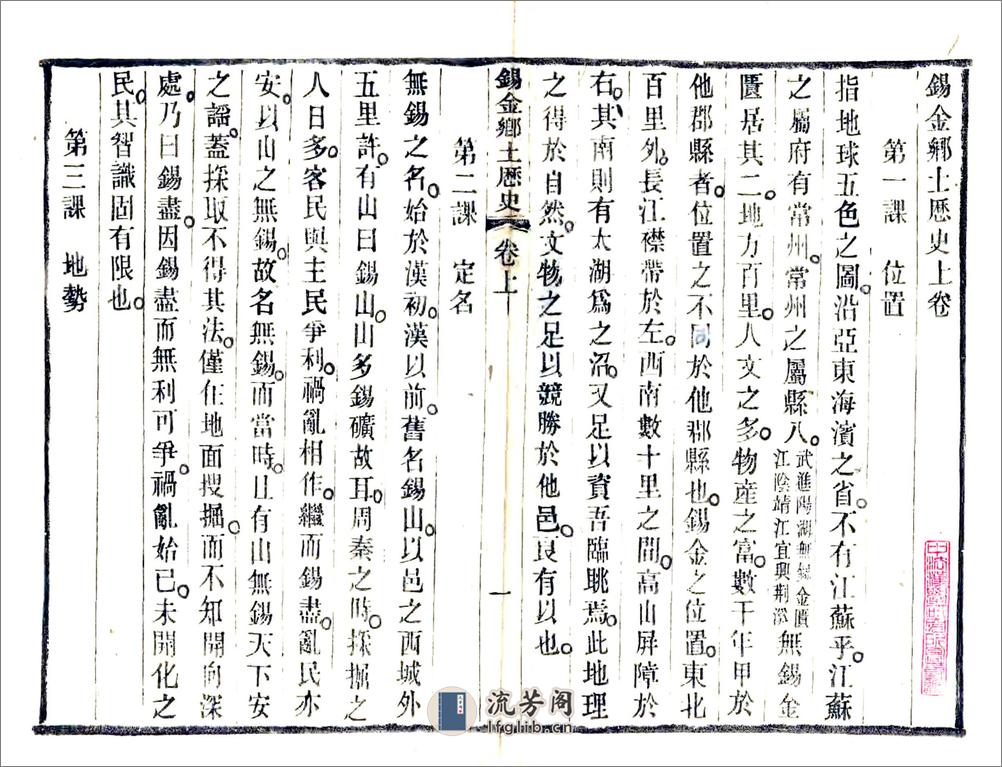 錫金鄉土歷史上卷
第一課 位置
指地球五色之圖。沿亞東海濱之省。不有江蘇乎。江蘇
之屬府有常州。常州之屬縣八。武進陽湖無錫金匱江陰靖江宜興荆溪無錫金
匱居其二。地方百里。人文之多。物產之富。數千年甲於
他郡縣者。位置之不同於他郡縣也。錫金之位置。東北
百里外。長江襟帶於左。西南數十里之間。高山屏障於
右。其南則有太湖爲之沼。又足以資吾臨眺焉。此地理
之得於自然。文物之足以競勝於他邑。良有以也。
錫金鄉土歷史 卷上 一
第二課 定名
無錫之名。始於漢初。漢以前。舊名錫山。以邑之西城外
五里許。有山曰錫山。山多錫礦故耳。周秦之時。採掘之
人日多。客民與主民爭利。禍亂相作。繼而錫盡。亂民亦
安。以山之無錫。故名無錫。而當時。且有山無錫天下安
之謡。蓋採取不得其法。僅在地面搜掘。而不知開向深
處。乃曰錫盡。因錫盡而無利可爭。禍亂始已。未開化之
民。其智識固有限也。
第三課 地勢
流芳阁
lfglib.com